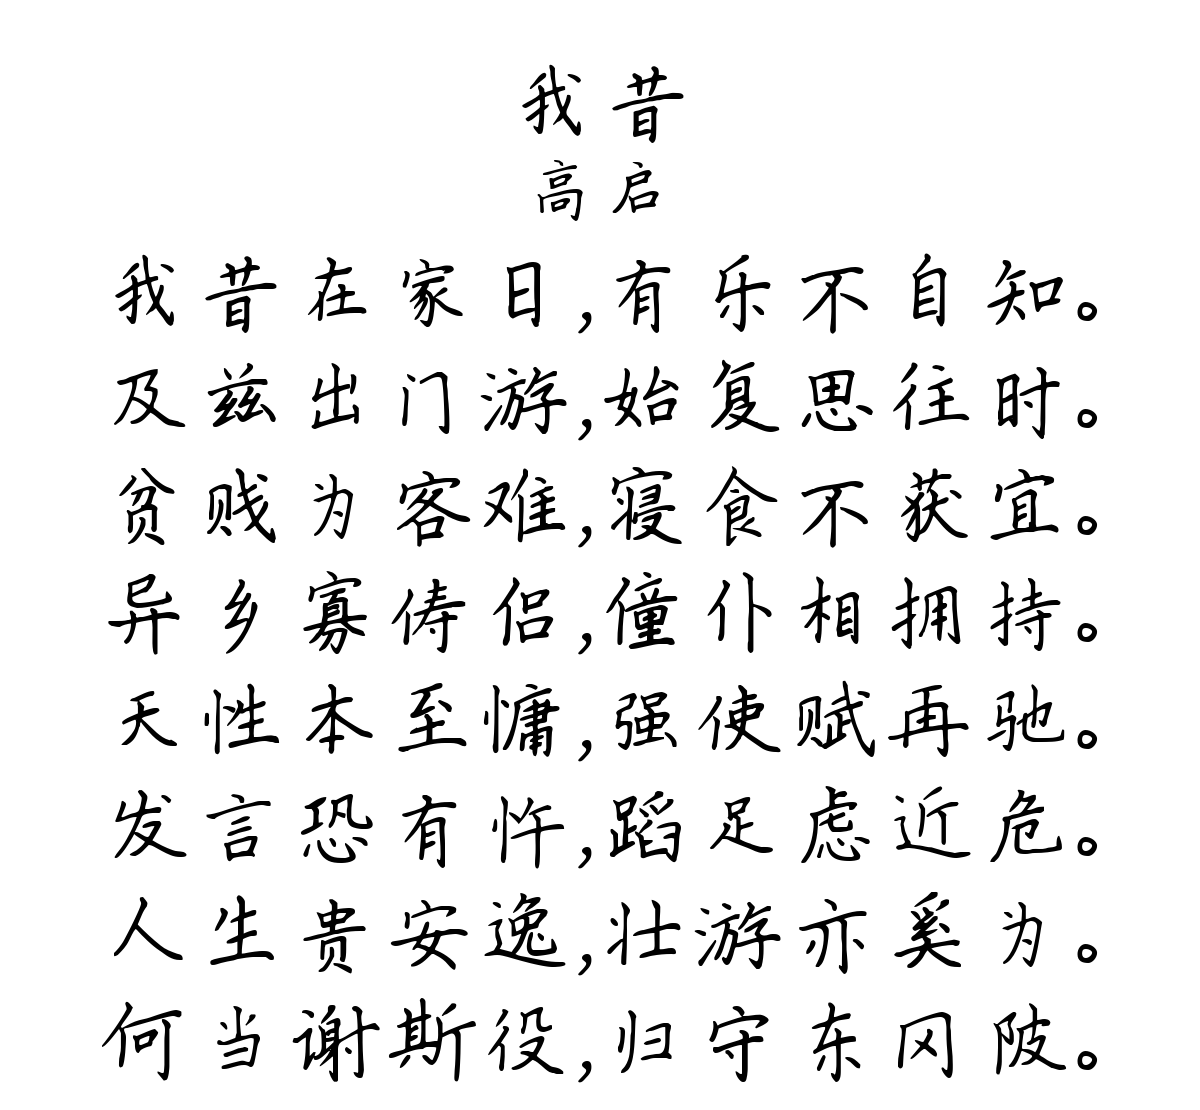 我昔
高启
我昔在家日,有乐不自知。
及兹出门游,始复思往时。
贫贱为客难,寝食不获宜。
异乡寡俦侣,僮仆相拥持。
天性本至慵,强使赋再驰。
发言恐有忤,蹈足虑近危。
人生贵安逸,壮游亦奚为。
何当谢斯役,归守东冈陂。